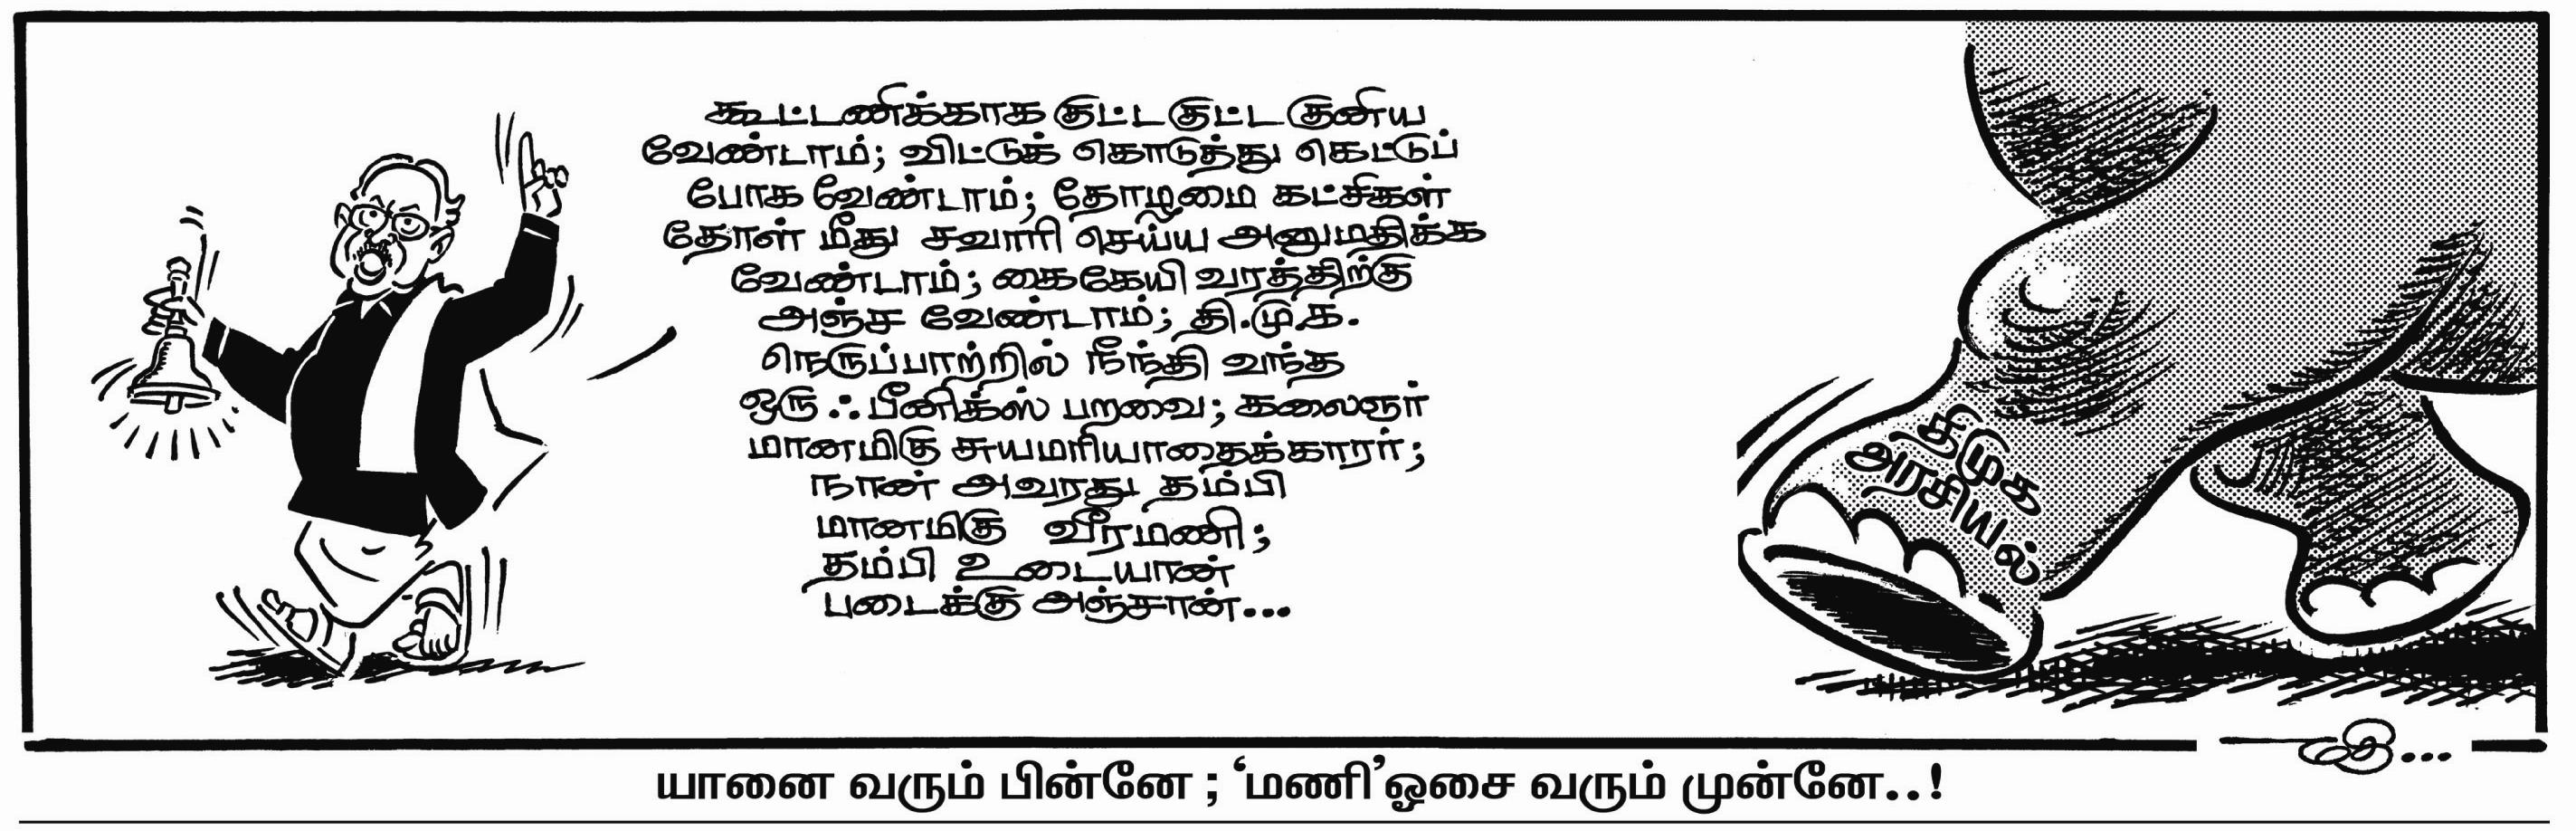 கூட்டணிக்காக குட்ட குட்ட குனிய
வேண்டாம்; விட்டுக் கொடுத்து கெட்டுப்
போக வேண்டாம்; தோழமை கட்சிகள்
தோள் மீது சவாரி செய்ய அனுமதிக்க
வேண்டாம்; கைகேயி வரத்திற்கு
அஞ்ச வேண்டாம்; தி.மு.க.
நெருப்பாற்றில் நீந்தி வந்த
ஒரு ஃபீனிக்ஸ் பறவை; கலைஞர்
மானமிகு சுயமரியாதைக்காரர்;
நான் அவரது தம்பி
மானமிகு வீரமணி;
தம்பி உடையான்
படைக்கு அஞ்சான்...
திமுக
அரசியல்
யானை வரும் பின்னே ; ‘மணி’ஓசை வரும் முன்னே..!